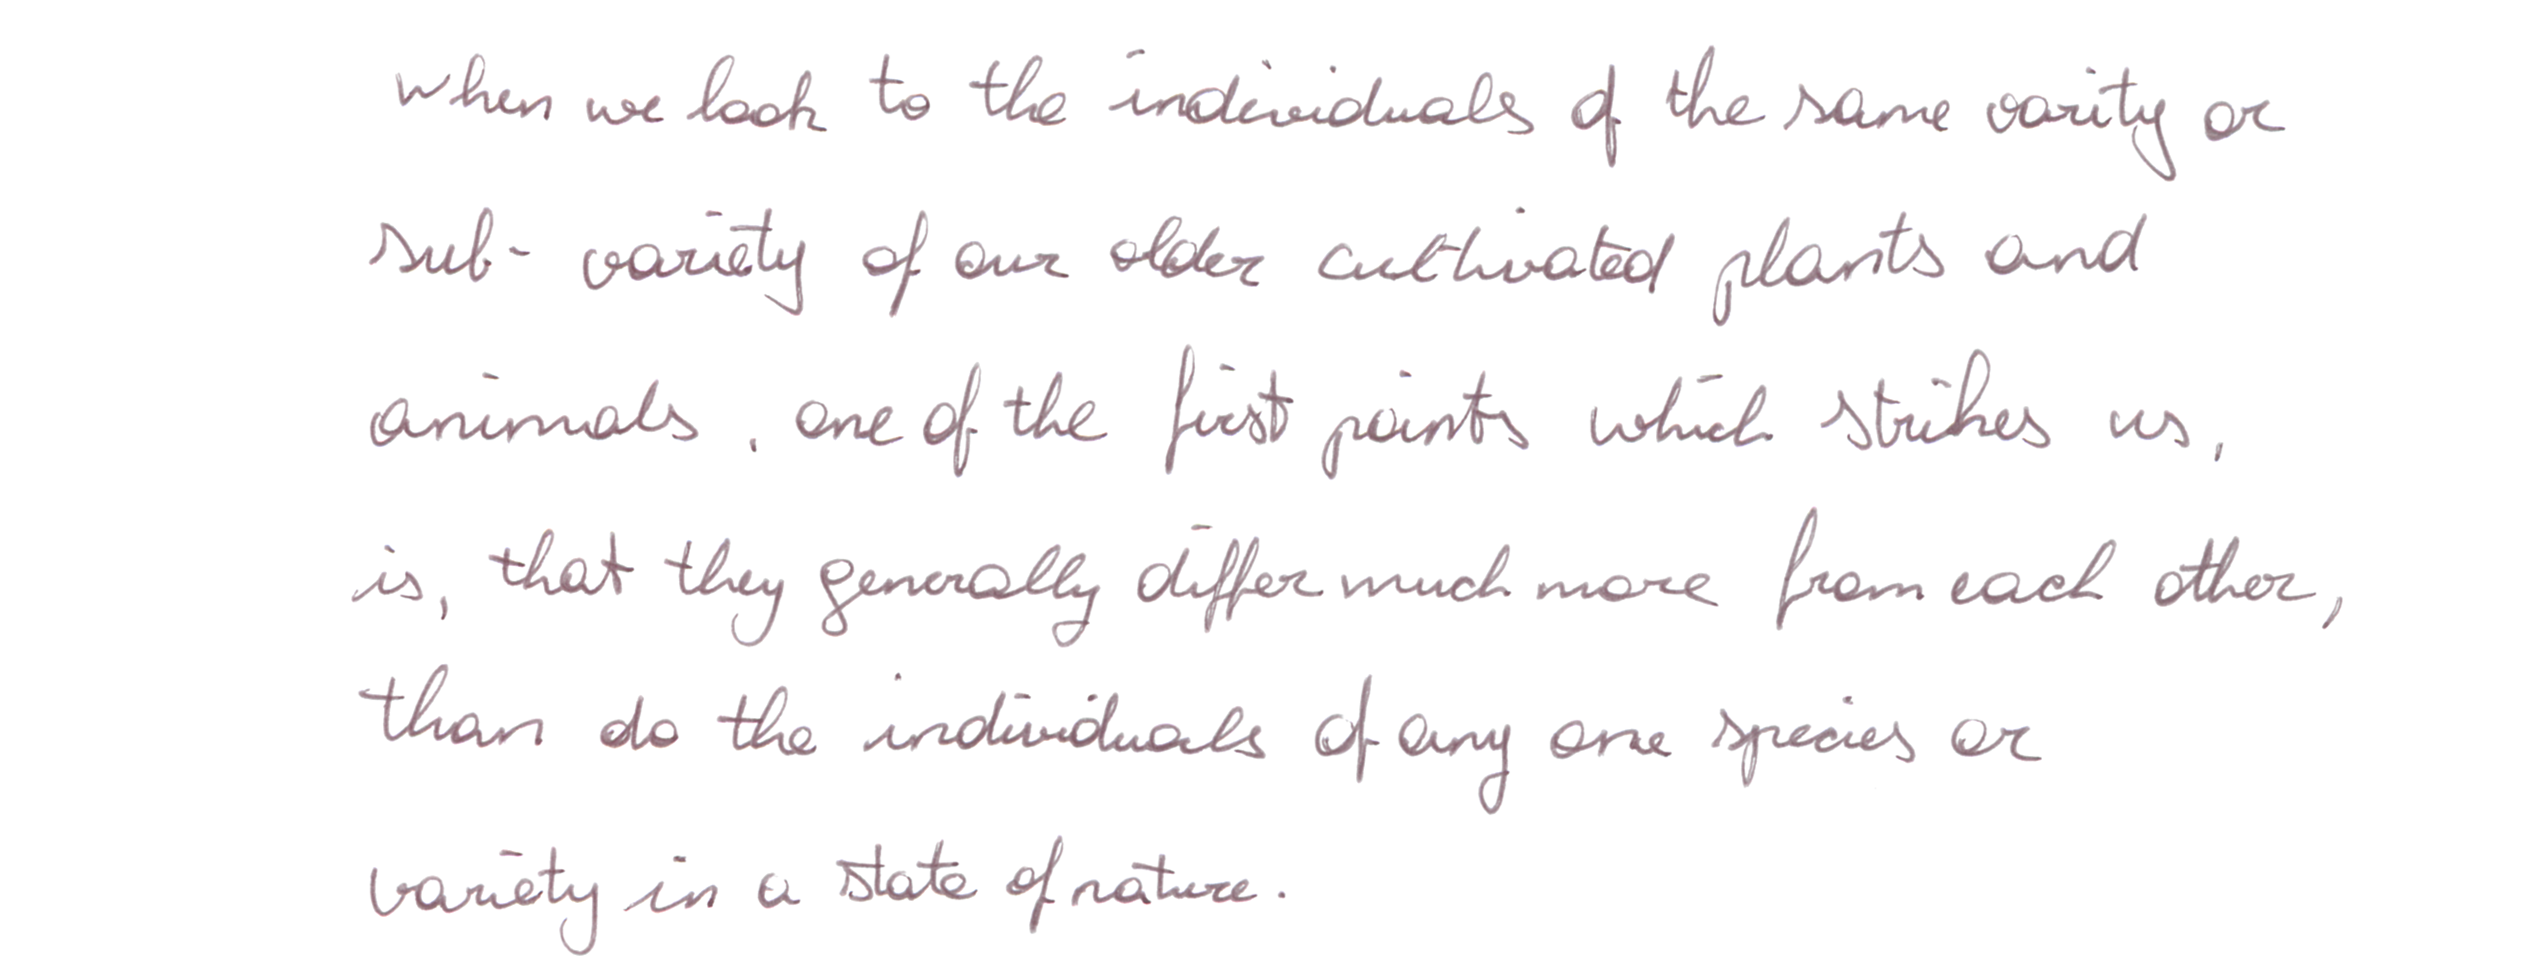 when we look to the individuals of the same varity or
sub- variety of our older cultivated plants and
animals, one of the first points which strikes us,
is, that they generally differ much more from each other,
than do the individuals of any one species or
variety in a state of nature.